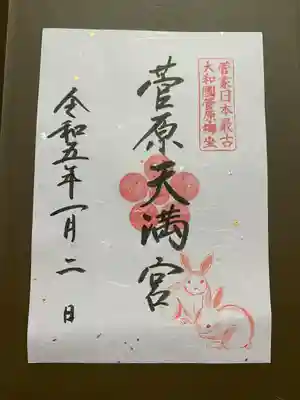 菅家日本最古
大和國菅原鎮坐
菅原天満宮
令和五年一月二日